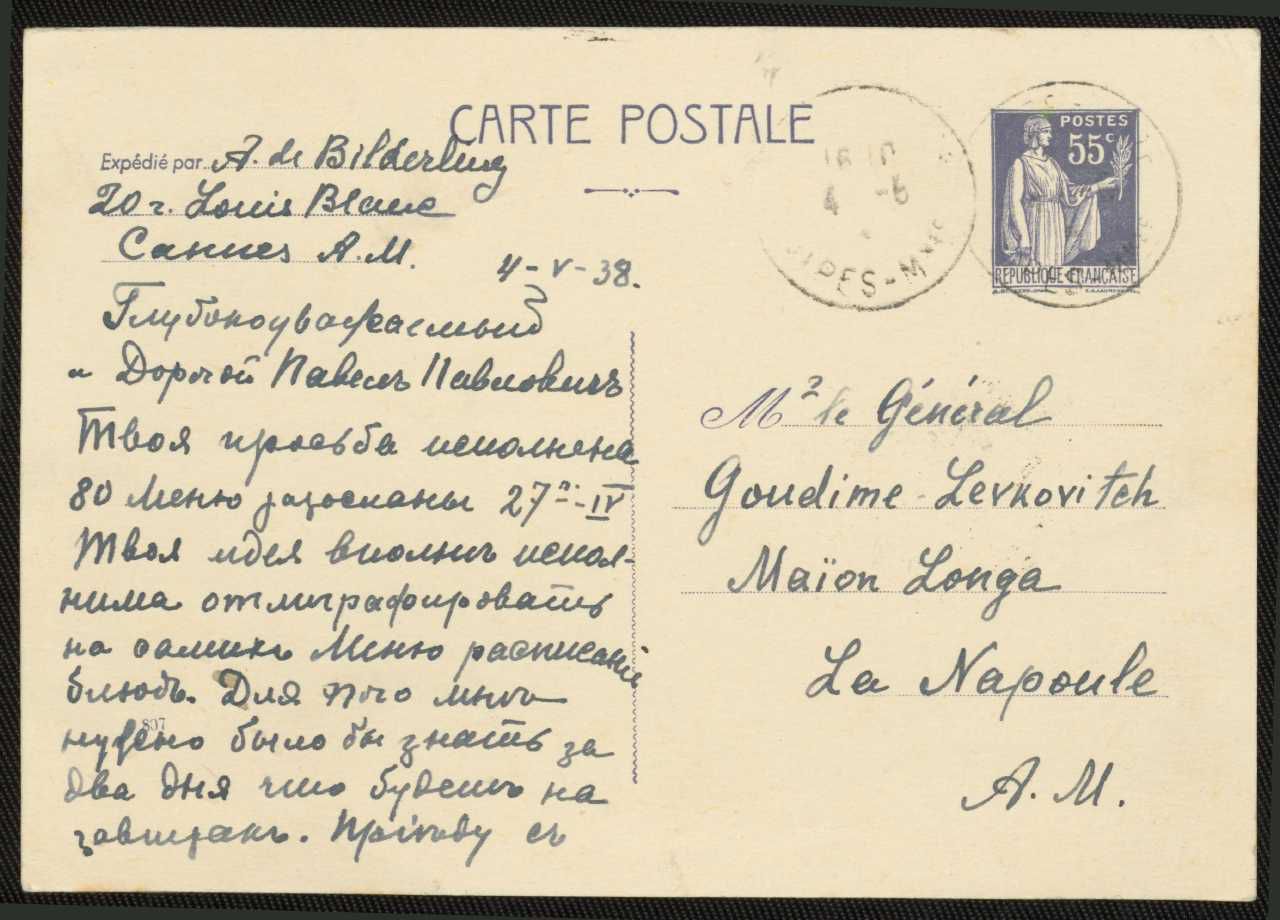 CARTE POSTALE
Expédié par A. de Bilderling
20 r. Louis Blanc
Cannes A.M.
4-V-38.
Глубокоуважаемый
и Дорогой Павелъ Павловичъ
Твоя просьба исполнена
80 Меню разосланы 27го-IV
Твоя идея вполнѣ испол-
нима отлиграфировать
на самихъ Меню расписаніе
блюдъ. Для того мнѣ
807
нужно было бы знать за
два дня что будетъ на
завтракъ. Пріѣду съ
POSTES
55c
REPUBLIQUE FRANCAISE
16 10
4 -5
ALPES-Mmes
Mr le Général
Goudime-Levkovitch
Maïon Longa
La Napoule
A.M.